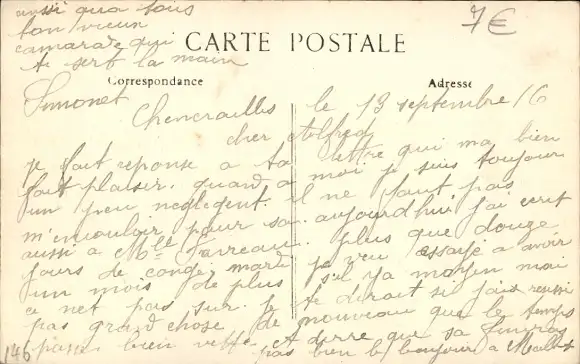 aussi qua tous
ton vieux
camarade qui
te sert la main
Simonet
7€
CARTE POSTALE
Correspondance
Adresse
le 13 septembre 16
cher Alfred
je fait reponse a ta lettre qui ma bien
fait plaisir. quand a moi je suis toujour
un peu neglegent. il ne faut pas
m'envouloir pour sa. aujourd'hui j'ai ecrit
aussi a Melle plus que douze
jours de conger mardi je veu essaije a avoir
un mois de plus s'il ya moyen moi
ce net pas sur. je te dirait si j'aix reussi
pas grand chose de nouveau que le temps
passe bien vitte. et dirre que sa
pas bien le bonjour a
146